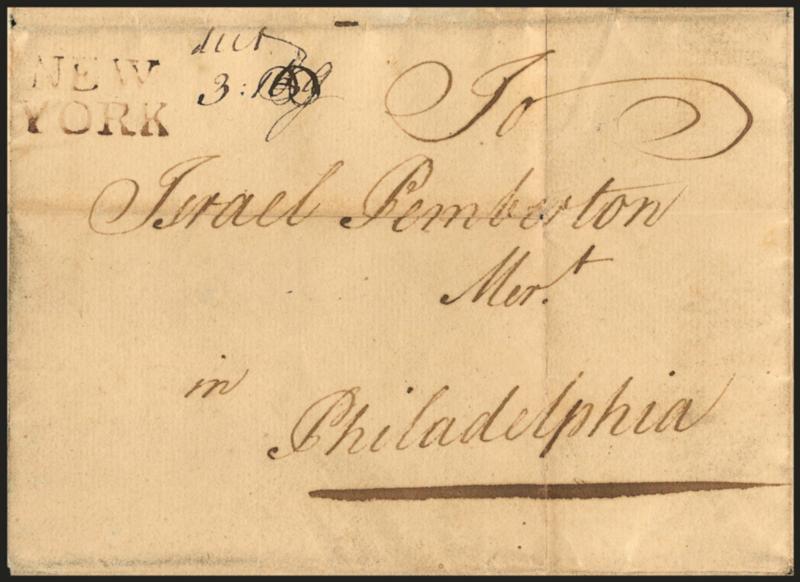 NEW
YORK
dwt
3: 16
To
Israel Pemberton
Mer.t
in
Philadelphia